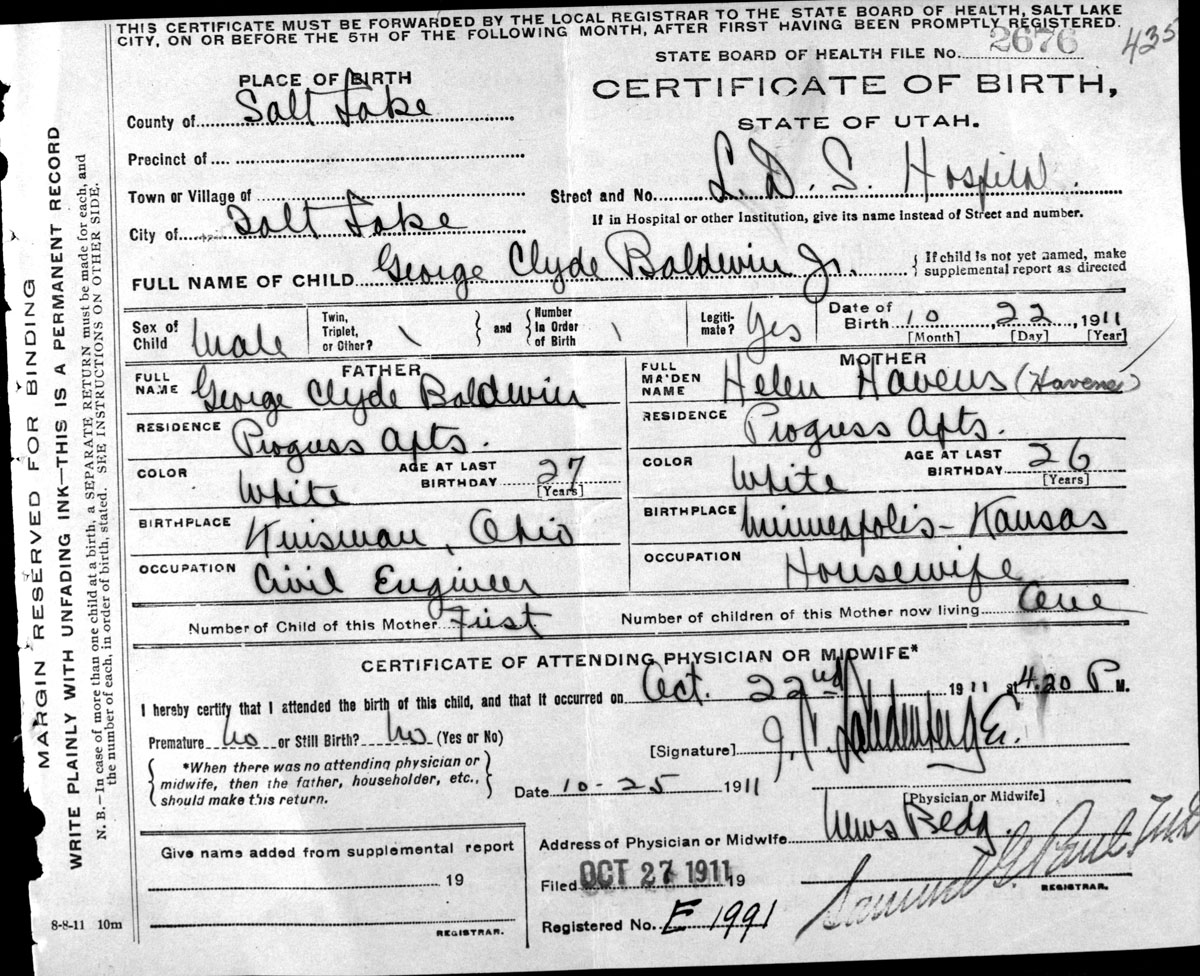 THIS CERTIFICATE MUST BE FORWARDED BY THE LOCAL REGISTRAR TO THE STATE BOARD OF HEALTH, SALT LAKE
CITY, ON OR BEFORE THE 5TH OF THE FOLLOWING MONTH, AFTER FIRST HAVING BEEN PROMPTLY REGISTERED.
STATE BOARD OF HEALTH FILE No. 2676 435
PLACE OF BIRTH
CERTIFICATE OF BIRTH,
STATE OF UTAH.
County of Salt Lake
Precinct of
Town or Village of
Street and No. L. D. S. Hospital.
If in Hospital or other Institution, give its name instead of Street and number.
City of Salt Lake
FULL NAME OF CHILD George Clyde Baldwin Jr.
{ If child is not yet named, make
supplemental report as directed
Sex of Child Male
Twin, Triplet, or Other? \
and
Number In Order of Birth \
Legiti-mate? Yes
Date of Birth 10, 22, 1911
[Month] [Day] [Year]
FATHER
FULL NAME George Clyde Baldwin
RESIDENCE Progress Apts.
COLOR White
AGE AT LAST BIRTHDAY 27
[Years]
BIRTHPLACE Kinsman, Ohio
OCCUPATION Civil Engineer
MOTHER
FULL MAIDEN NAME Helen Havens (Havens)
RESIDENCE Progress Apts.
COLOR White
AGE AT LAST BIRTHDAY 26
[Years]
BIRTHPLACE Minneapolis - Kansas
OCCUPATION Housewife
Number of Child of this Mother First
Number of children of this Mother now living One
CERTIFICATE OF ATTENDING PHYSICIAN OR MIDWIFE*
I hereby certify that I attended the birth of this child, and that it occurred on Oct. 22nd 1911 at 4.20 P M.
Premature No or Still Birth? No (Yes or No)
[Signature] J. C. Landenberger
*When there was no attending physician or
midwife, then the father, householder, etc.,
should make this return.
Date 10-25 1911
[Physician or Midwife]
Address of Physician or Midwife News Bldg.
Give name added from supplemental report
19
REGISTRAR.
Filed OCT 27 1911 19
Samuel G. Paul M.D.
REGISTRAR.
Registered No. E 1991
8-8-11 10m
MARGIN RESERVED FOR BINDING
WRITE PLAINLY WITH UNFADING INK—THIS IS A PERMANENT RECORD
N. B.—In case of more than one child at a birth, a SEPARATE RETURN must be made for each, and
the number of each, in order of birth, stated. SEE INSTRUCTIONS ON OTHER SIDE.